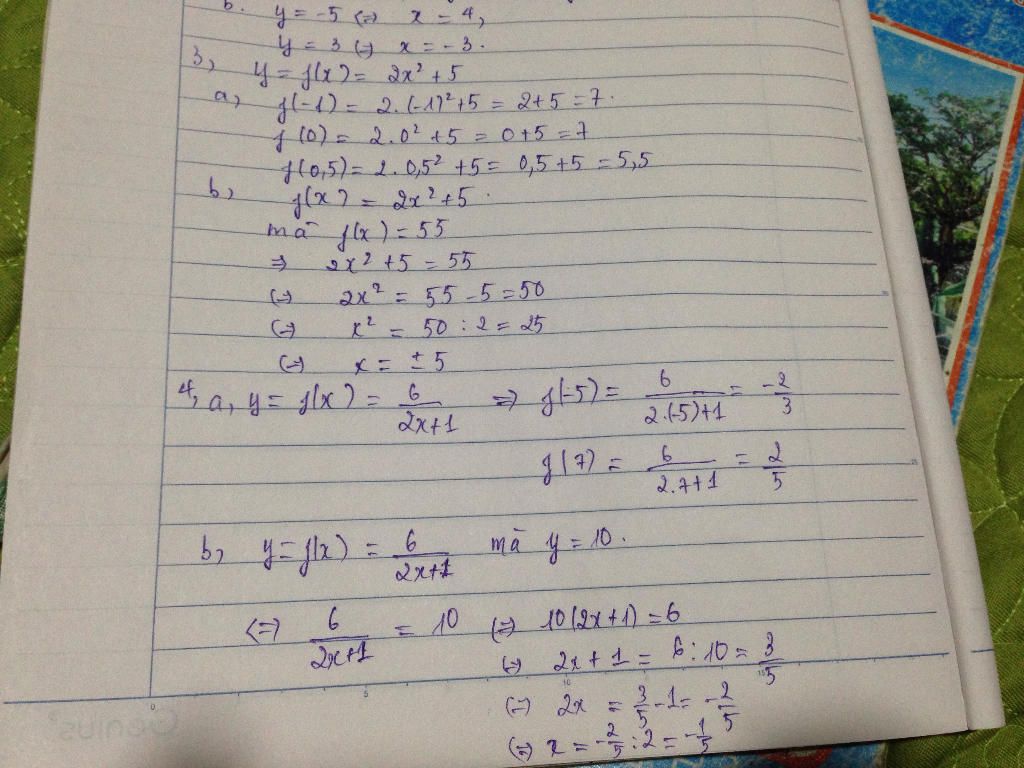 b. y = -5 (=) x = 4,
y = 3 (=) x = -3.
3, y = f(x) = 2x² + 5
a, f(-1) = 2.(-1)² + 5 = 2 + 5 = 7.
f(0) = 2.0² + 5 = 0 + 5 = 7
f(0,5) = 2.0,5² + 5 = 0,5 + 5 = 5,5
b, f(x) = 2x² + 5.
mà f(x) = 55
=> 2x² + 5 = 55
(=) 2x² = 55 - 5 = 50
(=) x² = 50 : 2 = 25
(=) x = ± 5
4, a, y = f(x) = 6/(2x+1) => f(-5) = 6/(2.(-5)+1) = -2/3
f(7) = 6/(2.7+1) = 2/5
b, y = f(x) = 6/(2x+1) mà y = 10.
<=> 6/(2x+1) = 10 (=) 10(2x+1) = 6
(=) 2x + 1 = 6 : 10 = 3/5
(=) 2x = 3/5 - 1 = -2/5
(=) x = -2/5 : 2 = -1/5
0 5 10 15
Genius